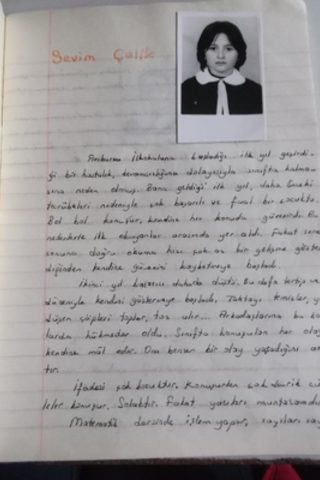 Sevim Çalık
İlkokuluna başladığı ilk yıl geçirdi-
ği bir hastalık, devamsızlığına dolayısıyla sınıfta kalma-
sına neden olmuş. Bana geldiği ilk yıl, daha önceki
tecrübeleri nedeniyle çok başarılı ve faal bir çocuktu.
Bol bol konuşur, kendine her konuda güvenirdi. Bu
nedenlerle ilk okuyanlar arasında yer aldı. Fakat sene
sonuna doğru okuma hızı çok az bir gelişme göster
diğinden kendine güvenini kaybetmeye başladı.
İkinci yıl başarısı daha da düştü. Bu defa tertip ve
düzeniyle kendini göstermeye başladı. Tahtayı temizler, y
düşen çöpleri toplar, toz alır... Arkadaşlarına bu ko
larda hükmeder oldu. Sınıfta konuşulan her olay
kendine mal eder. Ona benzer bir olay yaşadığını an
tır.
İfadesi çok bozuktur. Konuşurken çok devrik cü
leler konuşur. Solaktır. Fakat yazıları muntazamdı
Matematik dersinde işlem yapar, sayıları